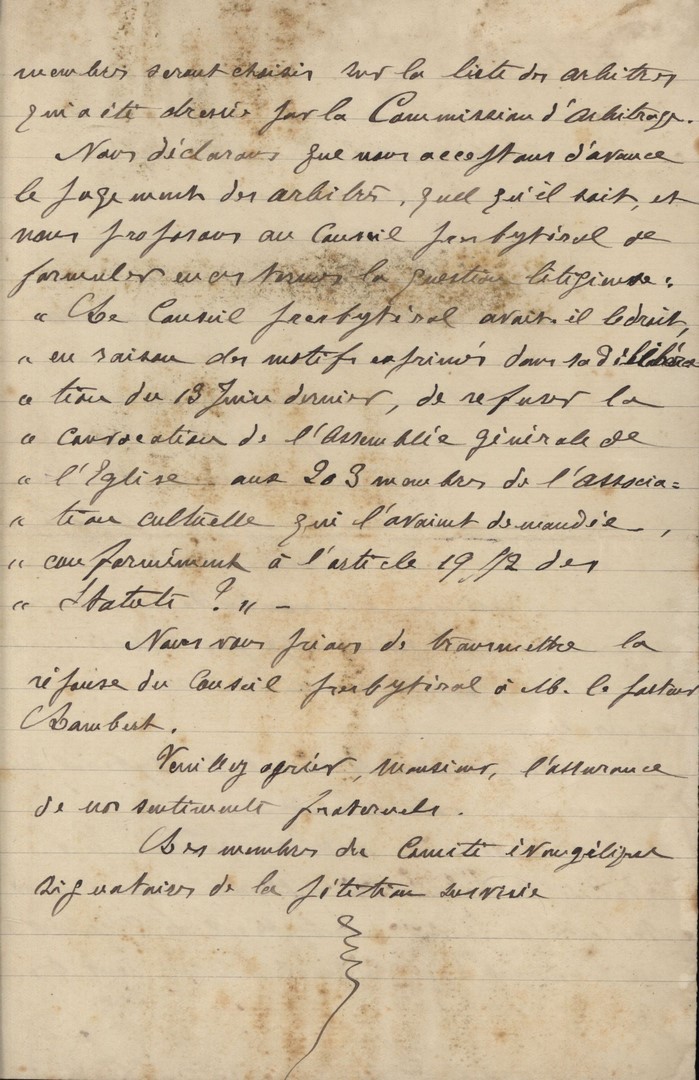 membres seront choisis sur la liste des arbitres
qui a été dressée par la Commission d'arbitrage.
Nous déclarons que nous acceptons d'avance
le jugement des arbitres, quel qu'il soit, et
nous proposons au Conseil presbytéral de
formuler en ces termes la question litigieuse :
" Le Conseil presbytéral avait-il le droit,
" en raison des motifs exprimés dans sa délibéra
" tion du 13 Juin dernier, de refuser la
" convocation de l'Assemblée générale de
" l'Eglise aux 203 membres de l'Associa=
" tion cultuelle qui l'avaient demandée,
" conformément à l'article 19 §2 des
" Statuts ? " –
Nous vous prions de transmettre la
réponse du Conseil presbytéral à M. le pasteur
Lambert.
Veuillez agréer, Monsieur, l'assurance
de nos sentiments fraternels.
Les membres du Comité évangélique
signataires de la pétition susvisée